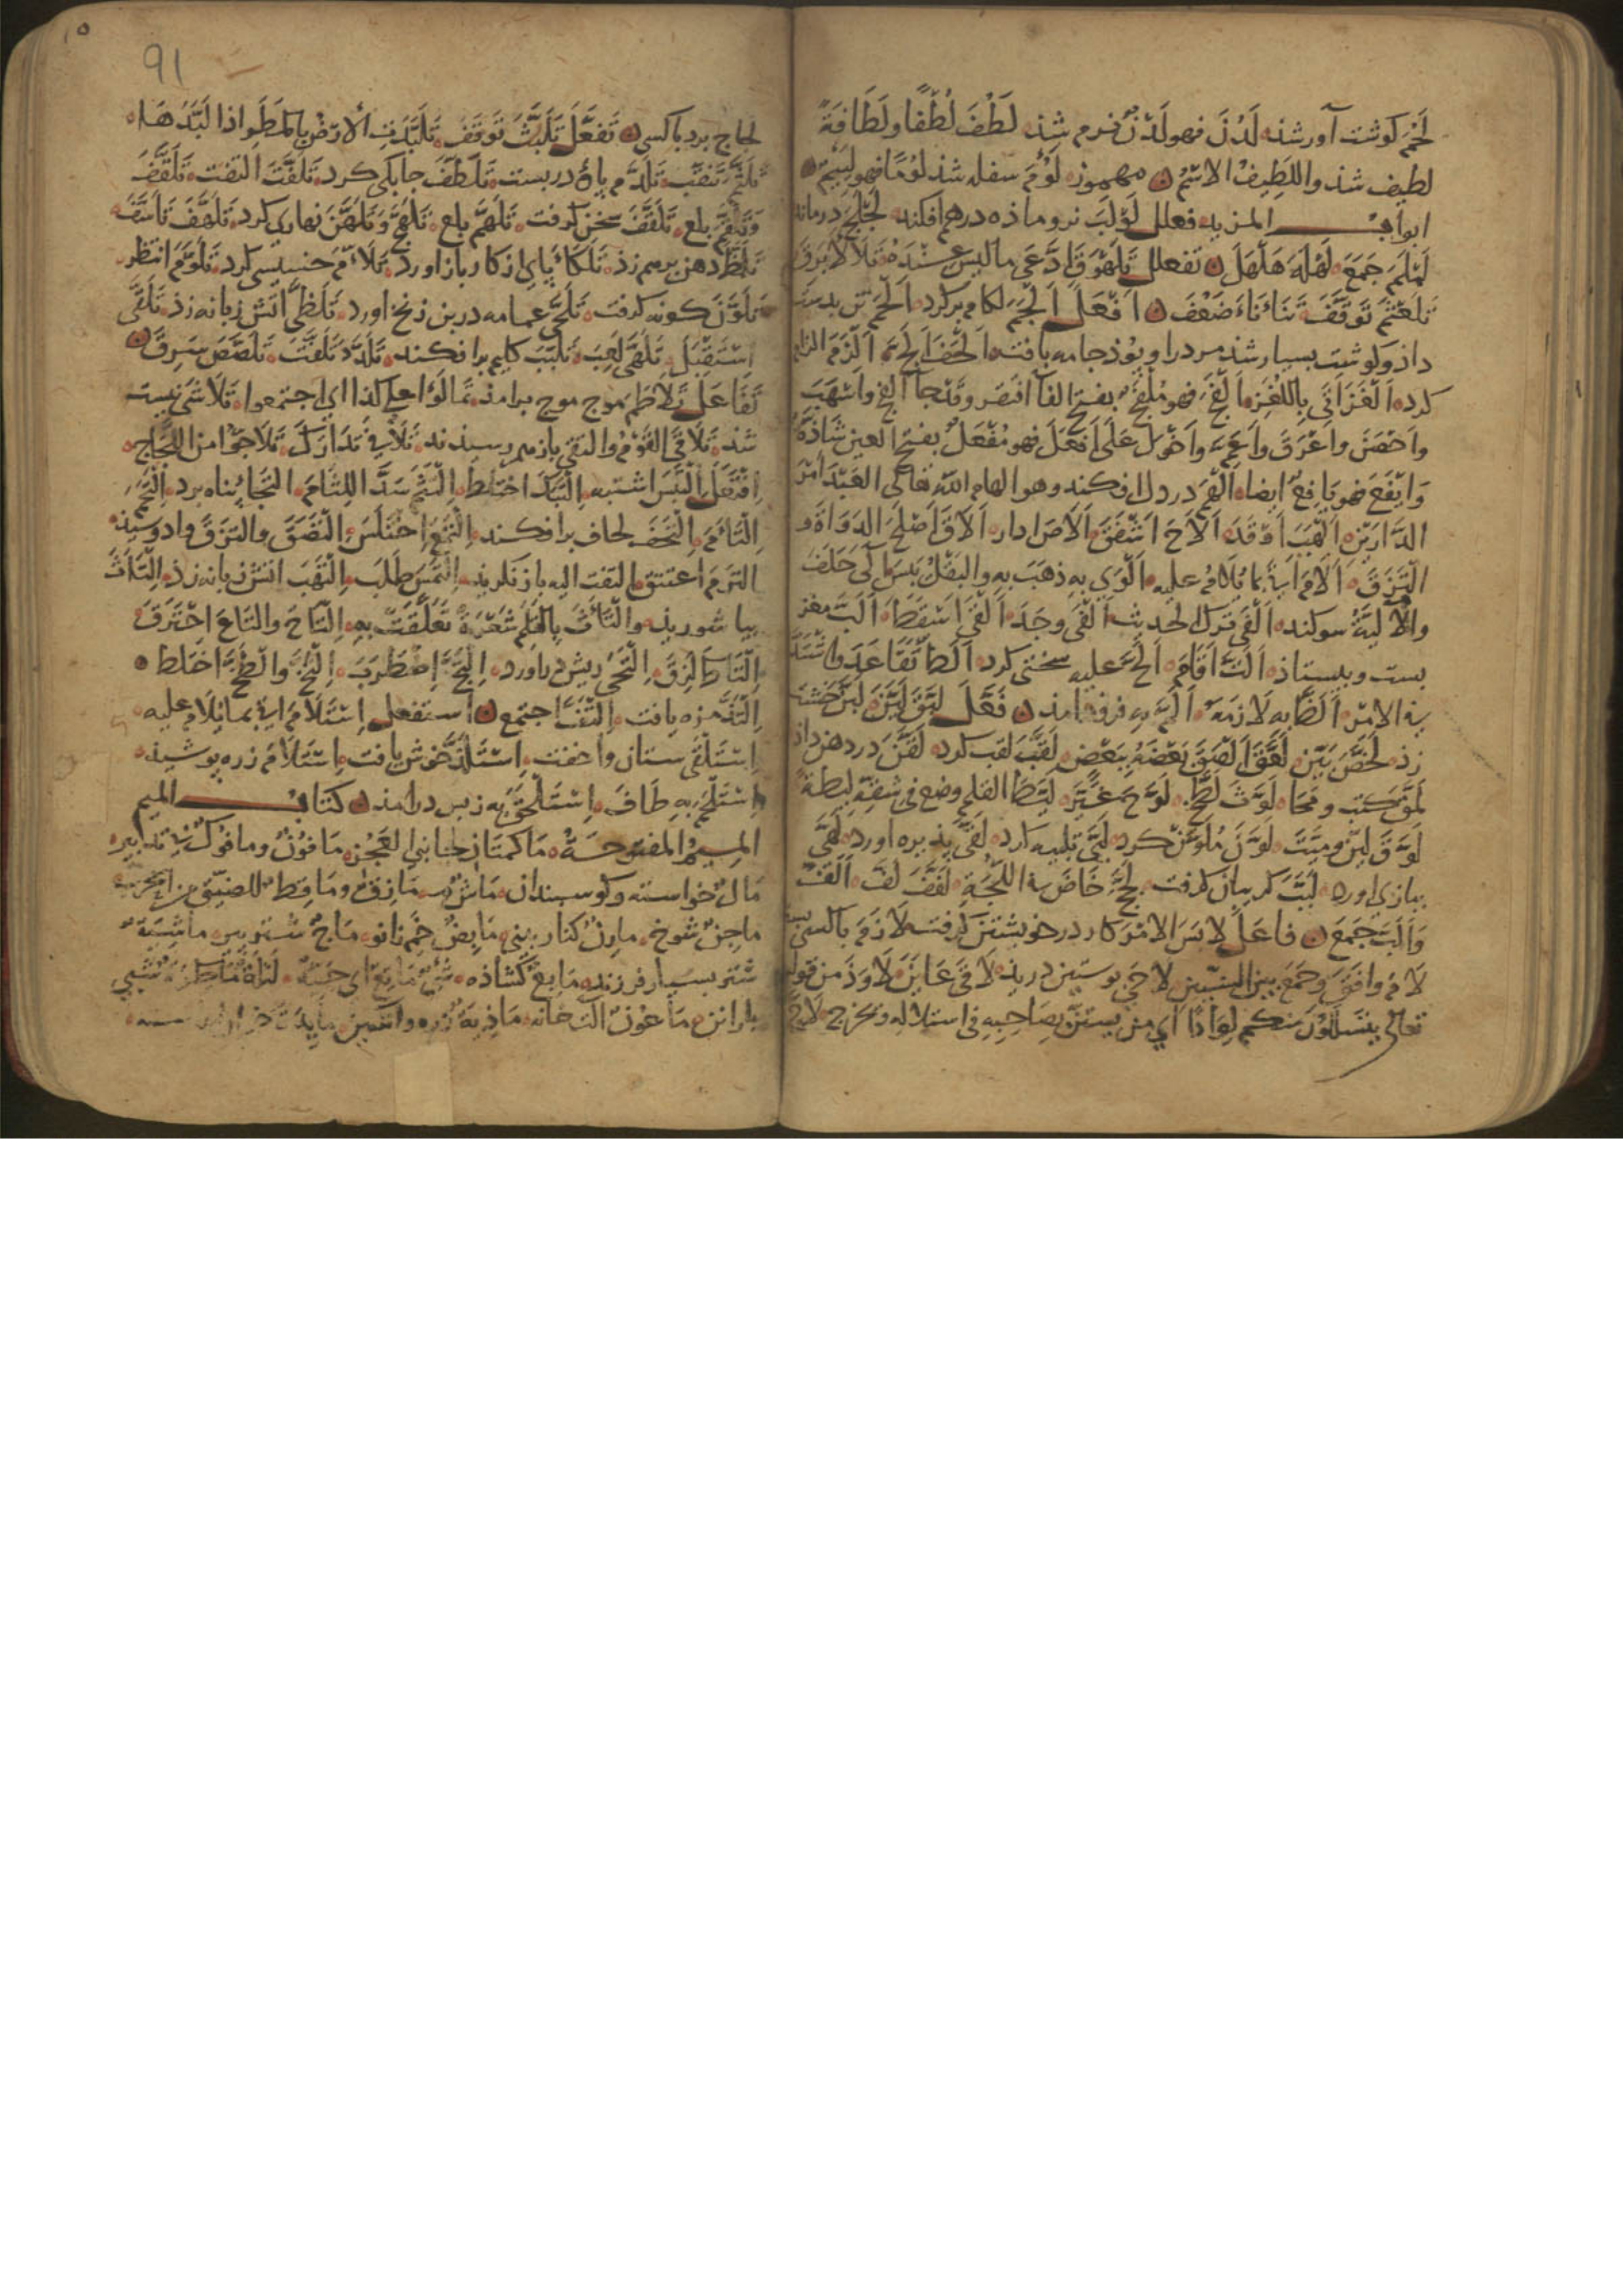 لَحُمَ كوشت آور شذ لَدُنَ فهو لَدْنٌ نرم شذ لَطُفَ لُطْفًا ولَطَافَةً
لطيف شذ واللَطِيفُ الاسْمُ مهموز لَؤُمَ سفله شذ لُؤْمًا فهو لَئِيمٌ
ابواب المزيد فعلل لَوْلَبَ نر وماذه درهم افكند لَجْلَجَ درماند
لَمْلَمَ جَمَعَ لَهْلَهَ هَلْهَلَ تفعلل تَلَهْوَقَ ادَّعَى ما ليس عنده تَلَأْلَأَ بَرَقَ
تَلَعْثَمَ تَوَقَّفَ تَنَأْنَأَ ضَعُفَ اَفْعَلَ اَلْجَمَ لكام بر كرد اَلْحَمَ تن بدست
داذ وكوشت بسيار شذ مرد را وبوذ جامه بافته اَلْحَفَ اَلَحَّ اَلْزَمَ الزام
كرد اَلْغَزَ اَتَى بِاللُّغَزِ اَلْفَجَ فهو مُلْفَجٌ بفتح الفا افتقر وقد جا الفج واسْهَبَ
واَحْصَنَ واَعْرَقَ واَعَمَّ واَخْوَلَ عَلَى اَفْعَلَ فهو مُفْعَلٌ بفتح العين شاذة
وَاَيْفَعَ فهو يَافِعٌ ايضا اَلْهَمَ در دل افكند وهو الهام الله تعالى العَبْدَ اَمْرَ
الدَّارَيْنِ اَلْهَبَ اَوْقَدَ اَلَاحَ اَشْفَقَ اَلَاصَ ادار اَلَاقَ اَصْلَحَ الدَوَاةَ و
الْتَزَقَ اَلَامَ اَتَى بما يُلَامُ عليه اَلْوَى به ذهَبَ به والبَقْلُ يَبِسَ آلَى حَلَفَ
والْاَلِيَّةُ سوكند اَلْغَى ترك الحديث اَلْفَى وَجَدَ اَلْقَى اَسْقَطَ اَلَبَّ مغز
بست وبيستاذ اَلَثَّ اَقَامَ اَلَحَّ عليه سختى كرد اَلَطَّ تَقَاعَدَ واشْتَدَّ
في الامر اَلَظَّ به لازمه اَلَمَّ به فروذ آمذ فَعَّلَ لَبَّقَ لَيَّنَ لَبَّنَ خشت
زذ لَخَّصَ بَيَّنَ لَفَّقَ اَلْصَقَ بَعْضَهُ بِبَعْضٍ لَقَّبَ لقب كرد لَقَّنَ در دهن داذ
لَمَّقَ كتب ومحا لَوَّثَ لَطَّخَ لَوَّحَ غَيَّرَ لَيَّطَ القلم وضع في شقته ليطة
لَوَّقَ لَيَّنَ ومَيَّثَ لَوَّنَ مُلَوَّن كرد لَبَّى تلبيه كرد لَقَّى پذيره اورد لَهَّى
ببازى اورد لَبَّبَ كريبان كرفت لَجَّجَ خَاضَ في اللُّجَّةِ لَفَّفَ لَفَّ اَلَّفَ
وَاَلَّبَ جَمَعَ فاعل لَابَسَ الامْرَ كار در خويشتن كرفت لَازَمَ با كسى
لَاءَمَ وافَقَ وجَمَعَ بين الشيئين لَاحَى پوستين دريذ لَاقَى عَايَنَ لَاوَذَ من قوله
تعالى يتسللون منكم لِوَاذًا اى من يستتر بصَاحِبِهِ في استلاله ويخرج لَاجَّ
لجاج برد با كسى تَفَعَّلَ تَلَبَّثَ تَوَقَّفَ تَلَبَّدَتِ الارْضُ بِالمَطَرِ اذا لَبَّدَهَا
تَلَثَّمَ تَنَقَّبَ تَلَدَّمَ پاره در بست تَلَطَّفَ چابكى كرد تَلَفَّتَ التفت تَلَقَّفَ
وَتَلَقَّمَ بلع تَلَقَّفَ سخن كرفت تَلَهَّمَ بلع تَلَهَّجَ وَتَلَهَّنَ نهارى كرد تَلَهَّفَ تَاَسَّفَ
تَلَمَّظَ دهن برهم زذ تَلَكَّأَ پاى از كار باز اورد تَلَاءَمَ تَلَوَّمَ انتظر
تَلَوَّنَ كونه كرفت تَلَحَّى عمامه در بن زنخ اورد تَلَظَّى اتش زبانه زذ تَلَقَّى
اسْتَقْبَلَ تَلَهَّى لَعِبَ تَلَبَّبَ كليم برافكند تَلَدَّدَ تَلَفَّتَ تَلَصَّصَ سَرَقَ
تَفَاعَلَ تَلَاطَمَ موج موج بر امذ تَمَالَؤُا على كذا اى اجتمعوا تَلَاشَى نيست
شذ تَلَاقَى القَوْمُ والتقى باز هم رسيذند تَلَافَى تَدَارَكَ تَلَاجُّوا من اللَّجَاجِ
اِفْتَعَلَ الْتَبَسَ اشتبه الْتَبَكَ اختَلَطَ الْتَثَمَ شَدَّ اللِثَامَ التَجَأَ پناه برد الْتَحَمَ
الْتَأَمَ الْتَحَفَ لحاف بر افكند الْتَمَعَ اختَلَسَ الْتَصَقَ والتَزَقَ وا دوسيذ
التَزَمَ اعتنق التفت اليه باز نكريذ الْتَمَسَ طَلَبَ الْتَهَبَ اتش زبانه زذ الْتَاثَ
بيا شوريذ والْتَاثَتْ بِالقَلَمِ شَعْرَةٌ تَعَلَّقَتْ بِهِ الْتَاحَ والتَاعَ احْتَرَقَ
الْتَاطَ لَزِقَ الْتَحَى ريش در اورد الْتَجَّ اضْطَرَبَ الْتَخَّ والْطَخَّ اختلط
الْتَذَّ مزه يافت الْتَفَّ اجتمع استفعل اِسْتَلَامَ اتى بما يُلَامُ عليه
اِسْتَلْقَى ستان وا خفت اِسْتَلَذَّ خوش يافت اِسْتَلْأَمَ زره پوشيذ
به طَافَ به ز پس در امذ كتاب الميم
الميم المفتوحة مَاْكَمَتَانِ جانبا العَجُزِ مَافُونٌ ومافُوكٌ بى تدبير
مَالٌ خواسته وكوسبندان مَاشٌ مَازِقٌ ومَاقِطٌ للضيّق من الحرب
ماجِنٌ شوخ مارِنٌ كنار بينى مَابِضٌ خم زانو مَاجٌّ شتر پير ماشيَةٌ
شتر بسيار فرزند مَايِعٌ كشاذه
باران مَاعُونٌ الت خانه مَاذِيَّةٌ زره وانكبين مايدة